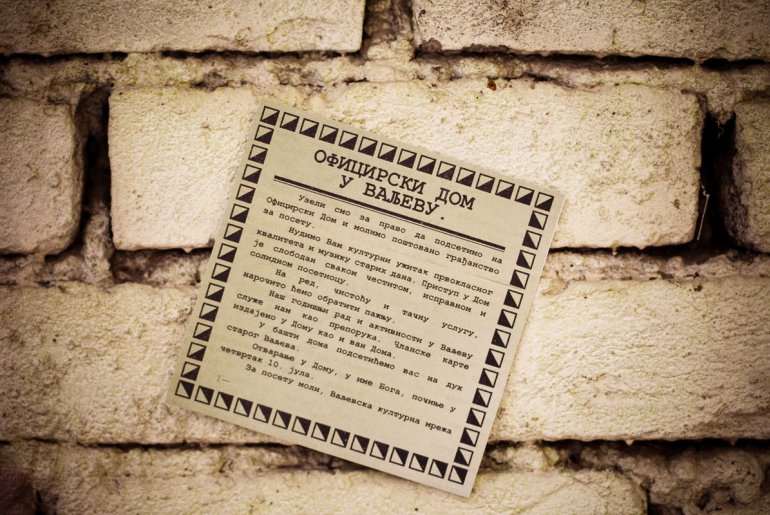 ОФИЦИРСКИ ДОМ
У ВАЉЕВУ.
Узели смо за право да подсетимо на
Официрски Дом и молимо поштовано грађанство
за посету.
Нудимо Вам културни ужитак првокласног
квалитета и музику старих дана. Приступ у Дом
је слободан сваком честитом, исправном и
солидном посетиоцу.
На ред, чистоћу и тачну услугу,
нарочито ћемо обратити пажњу.
Наш годишњи рад и активности у Ваљеву
служе нам као препорука. Чланске карте
издајемо у Дому као и ван Дома.
у башти дома подсетићемо вас на дух
старог Ваљева.
Отварање у Дому, у име Бога, почиње у
четвртак 10. јула.
За посету моли, Ваљевска културна мрежа